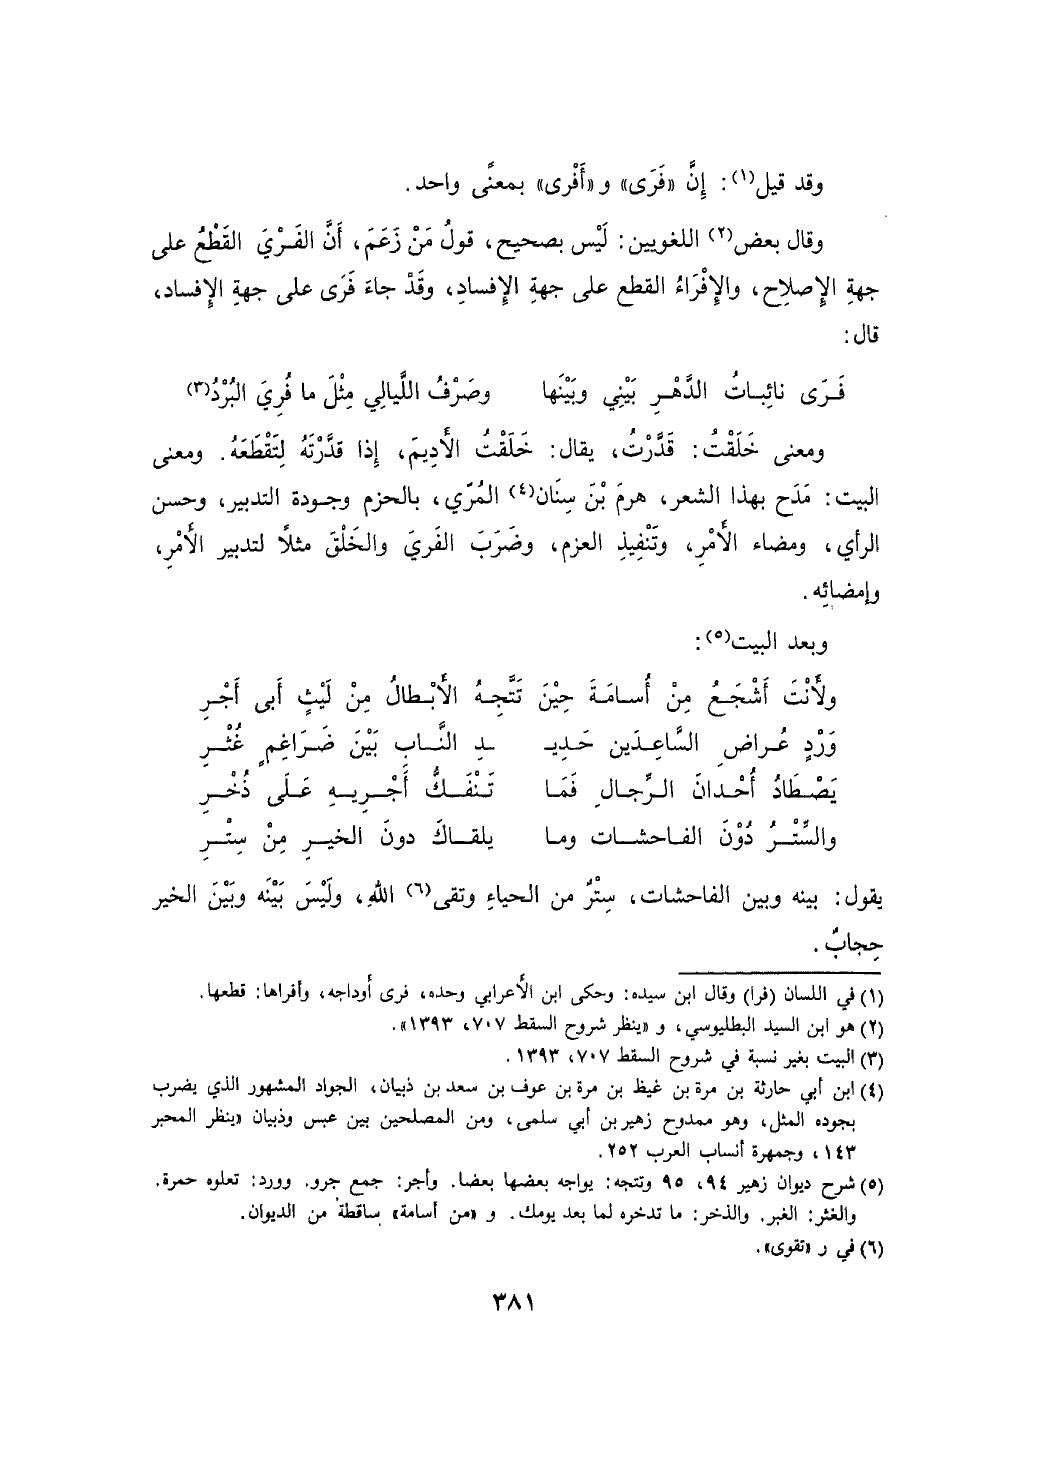 وقد قيل(١): إِنَّ «فَرَى» و «أَفْرى» بمعنًى واحد.
وقال بعض(٢) اللغويين: لَيْس بصحيح، قولُ مَنْ زَعَمَ، أَنَّ الفَرْيَ القَطْعُ على
جهةِ الإِصلاِح، والإِفْرَاءُ القطع على جهةِ الإِفسادِ، وقَدْ جاءَ فَرَى على جهةِ الإِفساد،
قال:
فَرَى نائِباتُ الدَّهْرِ بَيْنِي وبَيْنَها وصَرْفُ اللَّيالِي مِثْلَ ما فُرِيَ البُرْدُ(٣)
ومعنى خَلَقْتُ: قَدَّرْتُ، يقال: خَلَقْتُ الأَدِيمَ، إِذا قدَّرْتَهُ لِتَقْطَعَهُ. ومعنى
البيت: مَدَح بهذا الشعر، هرمَ بْنَ سِنَان(٤) المُرّي، بالحزم وجودة التدبير، وحسن
الرأي، ومضاء الأَمْرِ، وتَنْفِيذِ العزم، وضَرَبَ الفَريَ والخَلْقَ مثلًا لتدبير الأَمْرِ،
وإمضائِه.
وبعد البيت(٥):
ولأَنْتَ أَشْجَعُ مِنْ أُسامَةَ حِيْنَ تَتَّجِهُ الأَبْطالُ مِنْ لَيْثٍ أَبى أَجْرِ
وَرْدٍ عُراضِ السَّاعِدَين حَدِيـ ـدِ النَّابِ بَيْنَ ضَرَاغِمٍ غُثْرِ
يَصْطَادُ أُحْدانَ الرِّجالِ فَمَا تَنْفَكُّ أَجْرِيهِ عَلَى ذُخْرِ
والسِّتْرُ دُوْنَ الفاحشات وما يلقاكَ دونَ الخيرِ مِنْ سِتْرِ
يقول: بينه وبين الفاحشات، سِتْرٌ من الحياءِ وتقى(٦) اللهِ، ولَيْسَ بَيْنَه وبَيْنَ الخير
حِجابٌ.
(١) في اللسان (فرا) وقال ابن سيده: وحكى ابن الأعرابي وحده، فرى أوداجه، وأفراها: قطعها.
(٢) هو ابن السيد البطليوسي، و «ينظر شروح السقط ٧٠٧، ١٣٩٣».
(٣) البيت بغير نسبة في شروح السقط ٧٠٧، ١٣٩٣.
(٤) ابن أبي حارثة بن مرة بن غيظ بن مرة بن عوف بن سعد بن ذبيان، الجواد المشهور الذي يضرب
بجوده المثل، وهو ممدوح زهير بن أبي سلمى، ومن المصلحين بين عبس وذبيان «ينظر المحبر
١٤٣، وجمهرة أنساب العرب ٢٥٢.
(٥) شرح ديوان زهير ٩٤، ٩٥ وتتجه: يواجه بعضها بعضا. وأجر: جمع جرو. وورد: تعلوه حمرة.
والغثر: الغبر. والذخر: ما تدخره لما بعد يومك. و «من أسامة» ساقطة من الديوان.
(٦) في ر «تقوى».
٣٨١